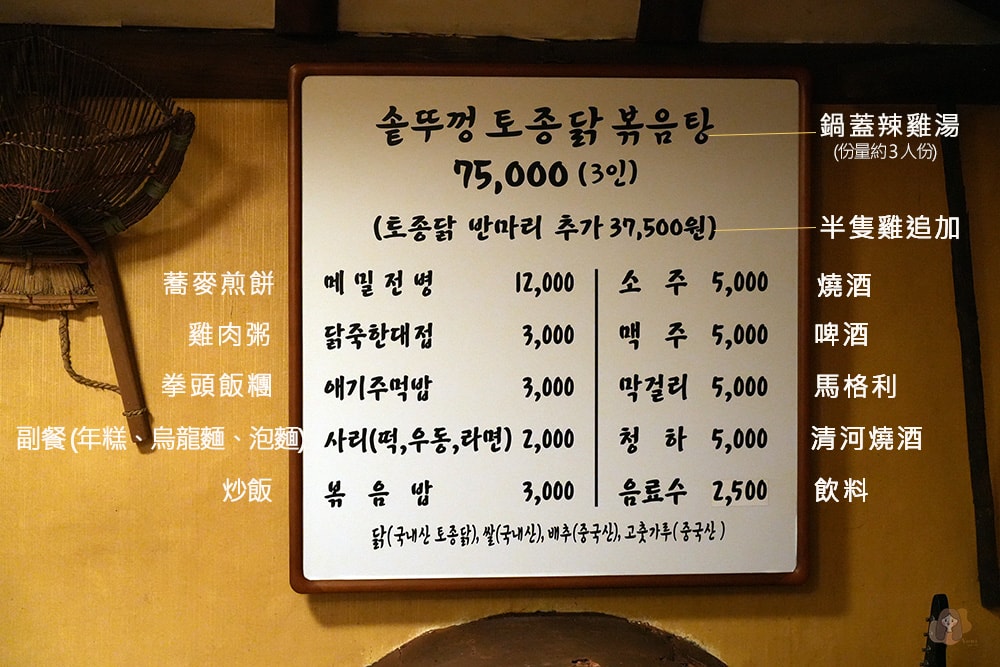 솥뚜껑 토종닭 볶음탕 鍋蓋辣雞湯
(份量約3人份)
75,000 (3인)
(토종닭 반마리 추가 37,500원) 半隻雞追加
蕎麥煎餅 메밀전병 12,000 소주 5,000 燒酒
雞肉粥 닭죽한대접 3,000 맥주 5,000 啤酒
拳頭飯糰 애기주먹밥 3,000 막걸리 5,000 馬格利
副餐(年糕、烏龍麵、泡麵) 사리(떡,우동,라면) 2,000 청하 5,000 清河燒酒
炒飯 볶음밥 3,000 음료수 2,500 飲料
닭(국내산 토종닭), 쌀(국내산), 배추(중국산), 고춧가루(중국산)